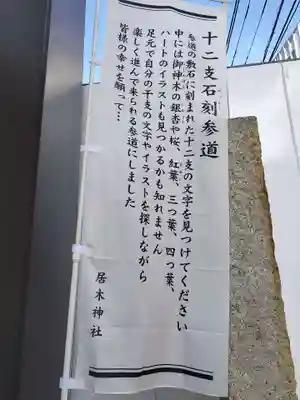 十二支石刻参道
参道の敷石に刻まれた十二支の文字を見つけてください
中には御神木の銀杏や桜、紅葉、三つ葉、四つ葉、
ハートのイラストも見つかるかも知れません
足元で自分の干支の文字やイラストを探しながら
楽しく進んで来られる参道にしました
皆様の幸せを願って…
居木神社